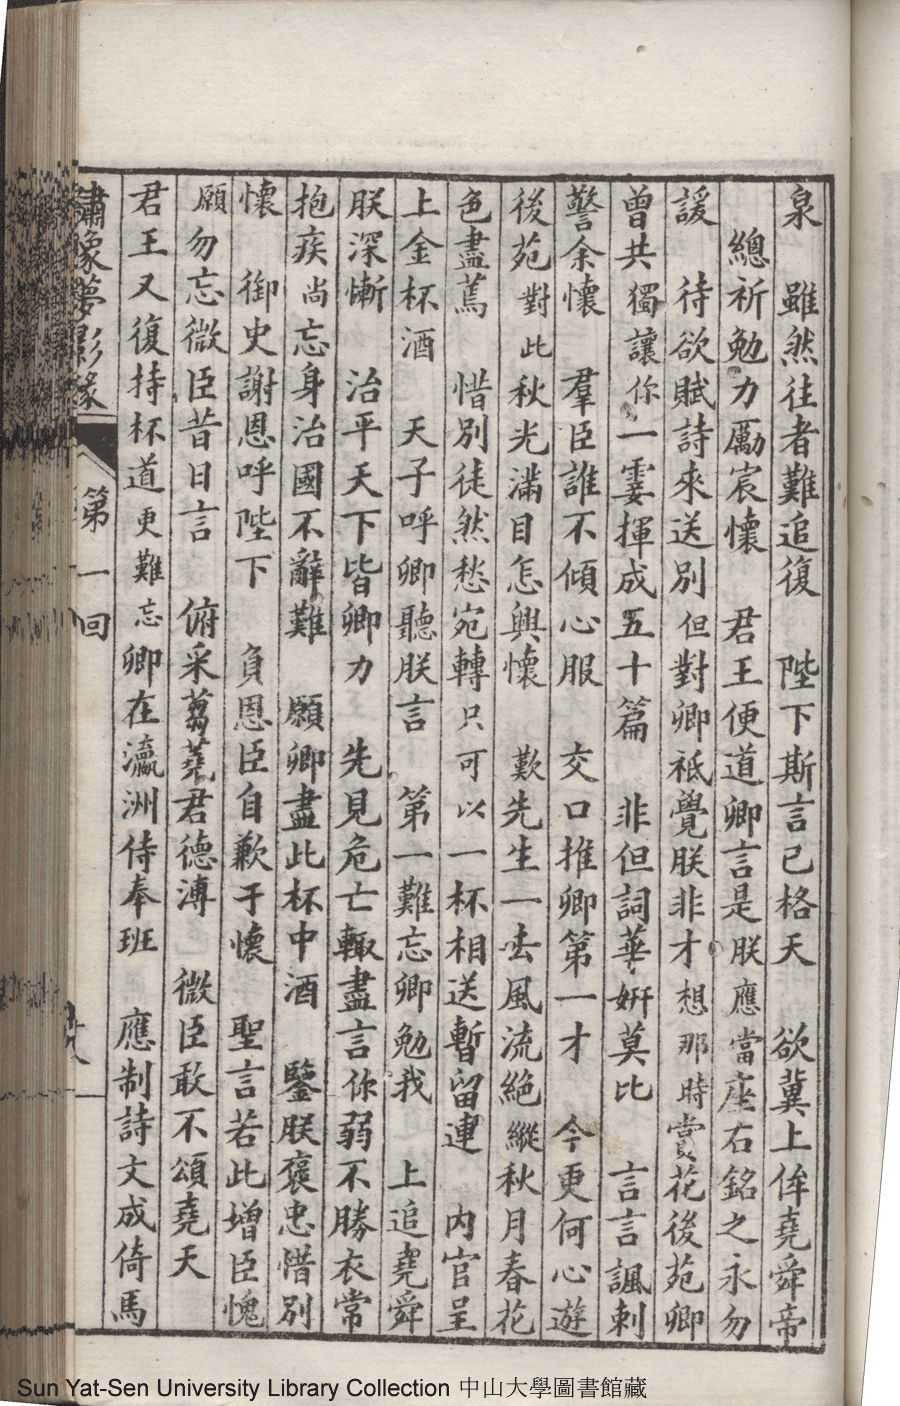 泉　雖然往者難追復　陛下斯言已格天　欲冀上侔堯舜帝
總祈勉力勵宸懷　君王便道卿言是朕應當座右銘之永勿
諼　待欲賦詩來送別但對卿祗覺朕非才想那時賞花後苑卿
曾共獨讓你一霎揮成五十篇　非但詞華妍莫比　言言諷刺
警余懷　羣臣誰不傾心服　交口推卿第一才　今更何心遊
後苑對此秋光滿目怎興懷　歎先生一去風流絕縱秋月春花
色盡蔫　惜別徒然愁宛轉只可以一杯相送暫留連　內官呈
上金杯酒　天子呼卿聽朕言　第一難忘卿勉我　上追堯舜
朕深慚　治平天下皆卿力　先見危亡輙盡言你弱不勝衣常
抱疾尚忘身治國不辭難　願卿盡此杯中酒　鑒朕襃忠惜別
懷　御史謝恩呼陛下　負恩臣自歉于懷　聖言若此增臣愧
願勿忘微臣昔日言　俯采芻蕘君德溥　微臣敢不頌堯天
君王又復持杯道更難忘卿在瀛洲侍奉班　應制詩文成倚馬
繡像夢影緣　第一回
Sun Yat-Sen University Library Collection 中山大學圖書館藏